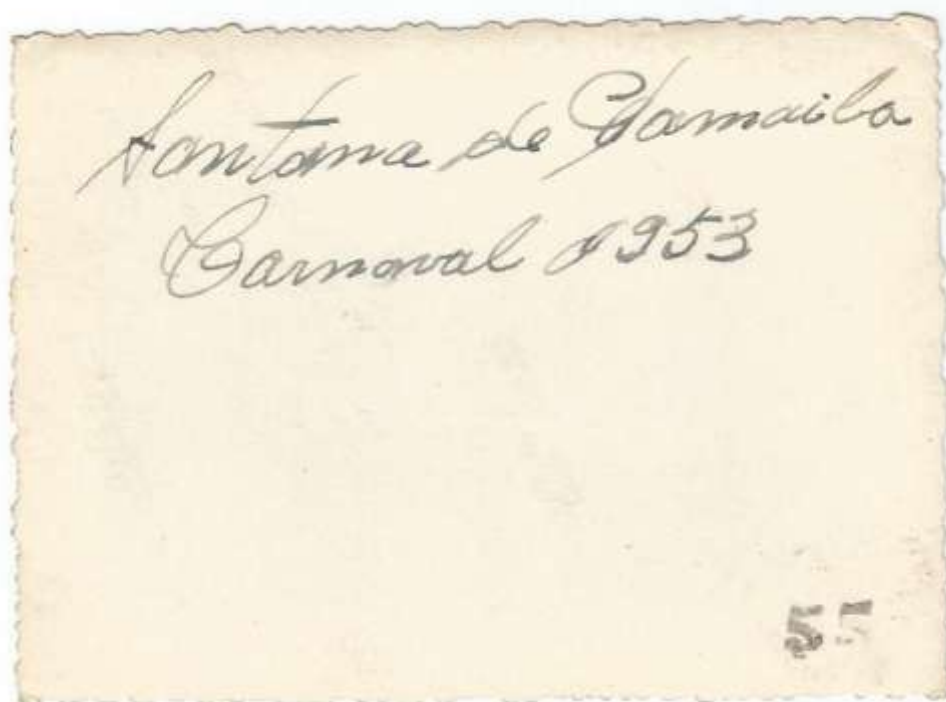 Santana de Parnaiba
Carnaval 1953
55